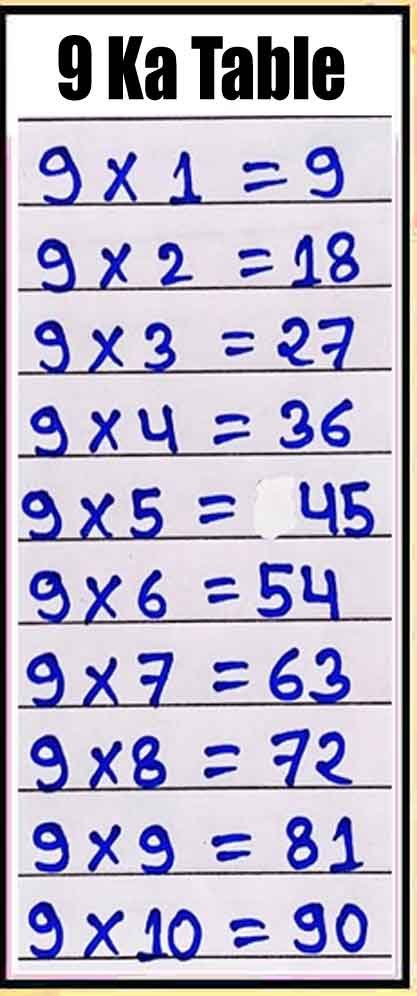 9 Ka Table
9 x 1 = 9
9 x 2 = 18
9 x 3 = 27
9 x 4 = 36
9 x 5 = 45
9 x 6 = 54
9 x 7 = 63
9 x 8 = 72
9 x 9 = 81
9 x 10 = 90